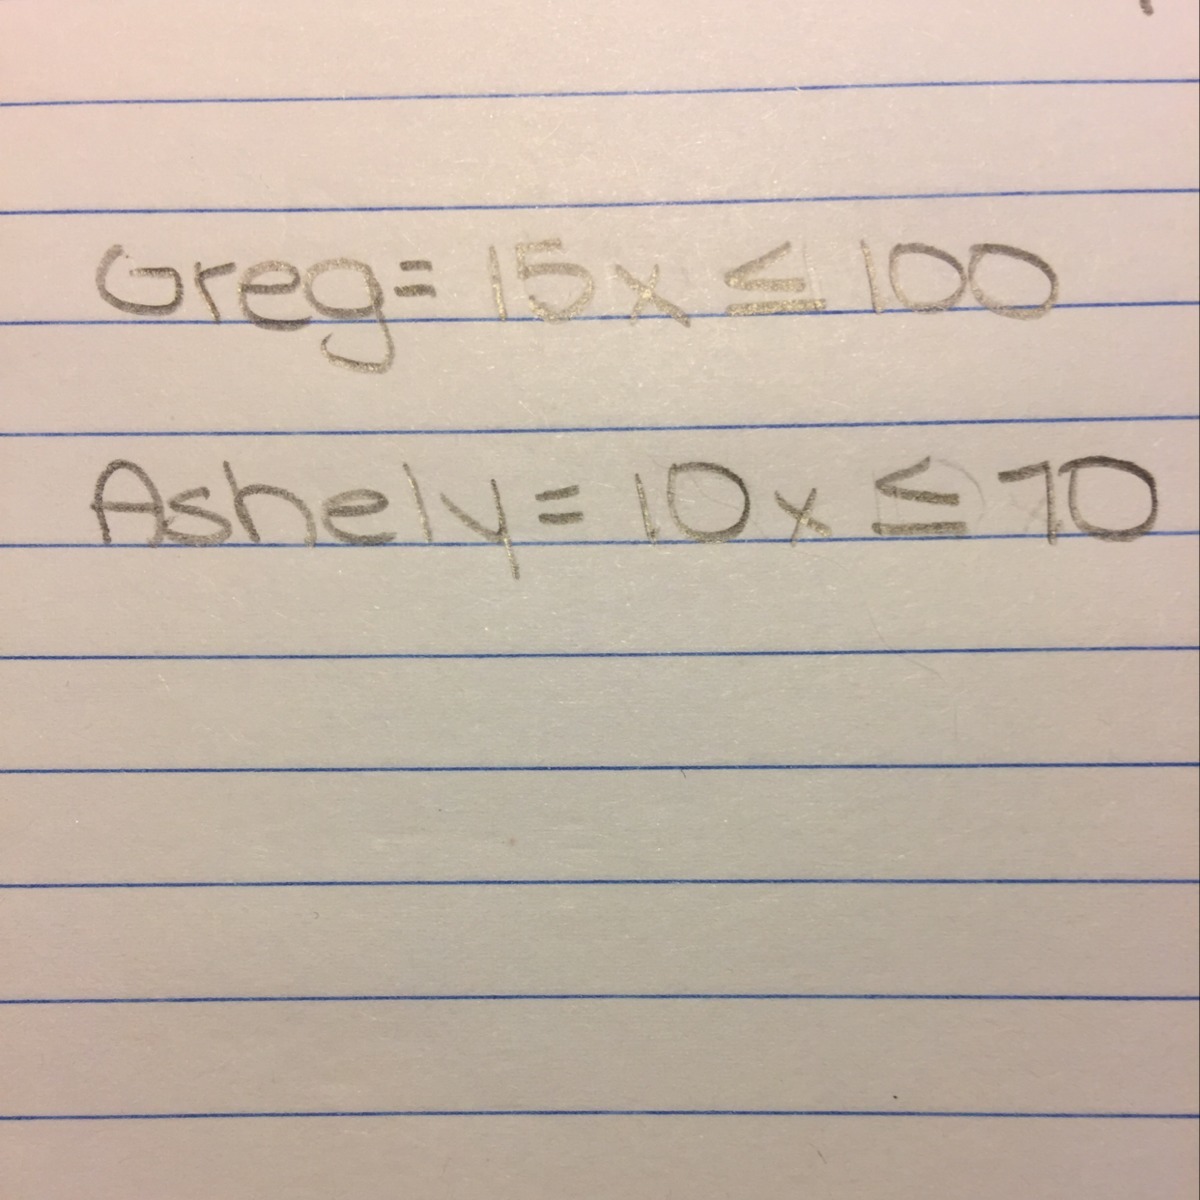 Greg= 15x ≤ 100
Ashely= 10x ≤ 70